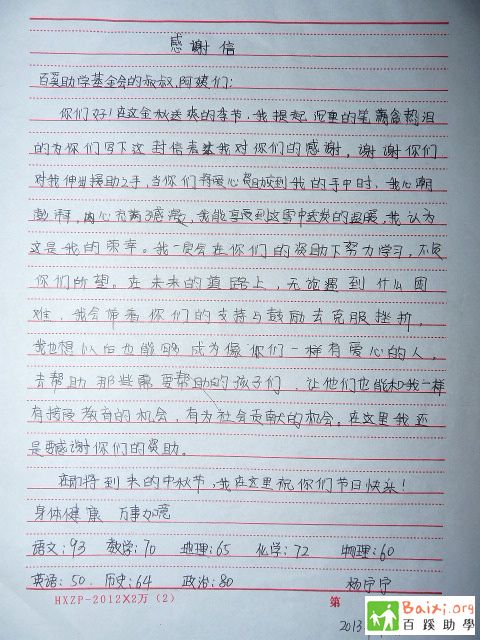 感谢信
百奚助学基金会的叔叔,阿姨们:
你们好!在这金秋送爽的季节,我提起沉重的笔,满含热泪
的为你们写下这封信表达我对你们的感谢,谢谢你们
对我伸出援助之手,当你们将爱心资助放到我的手中时,我心潮
澎湃,内心充满感爱,我能享受到这雪中送炭的温暖,我认为
这是我的荣幸。我一定会在你们的资助下努力学习,不负
你们所望。在未来的道路上,无论遇到什么困
难,我会带着你们的支持与鼓励去克服挫折,
我也想以后也能够成为像你们一样有爱心的人,
去帮助那些需要帮助的孩子们,让他们也能和我一样
有接受教育的机会,有为社会贡献的机会。在这里我还
是要感谢你们的资助。
在即将到来的中秋节,我在这里祝你们节日快乐!
身体健康 万事如意
语文:93 数学:70 地理:65 化学:72 物理:60
英语:50. 历史:64 政治:80 杨宇宁
HXZP-2012X2万(2) 第
2013
Baixi.org
百蹊助學